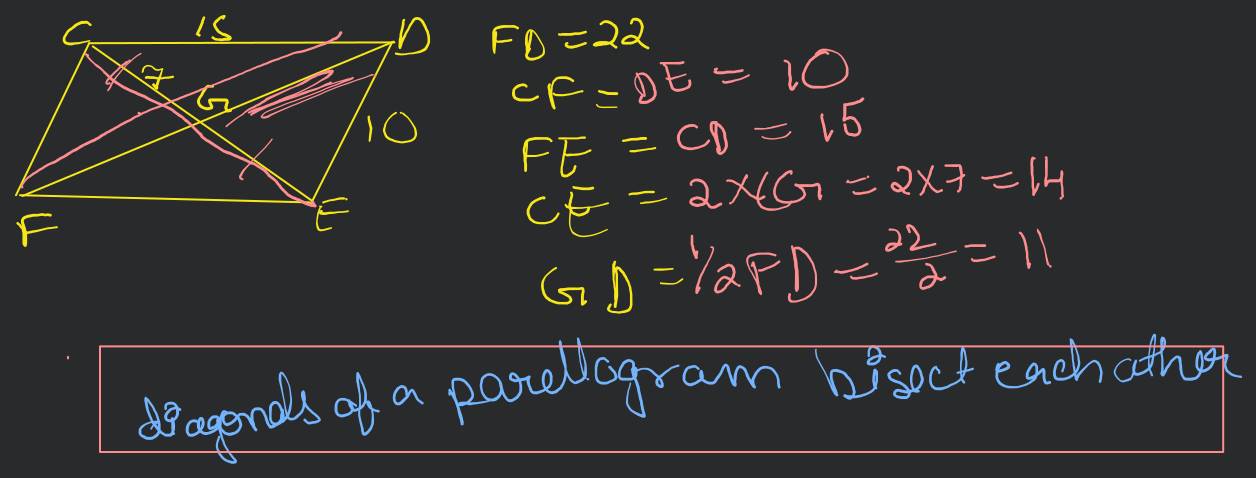 C 15 D
7
G
10
F E
FD = 22
CF = DE = 10
FE = CD = 15
CE = 2XCG = 2X7 = 14
GD = 1/2FD = 22/2 = 11
diagonals of a parellogram bisect each other